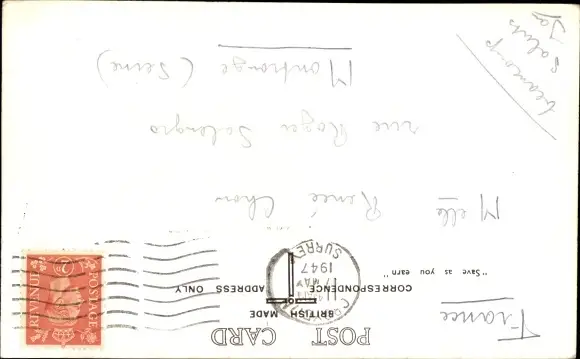 POST CARD
BRITISH MADE
CORRESPONDENCE
ADDRESS ONLY
"Save as you earn"
SURREY
MAY
1947
POSTAGE
REVENUE
France
Melle Renée Chon
rue Roger Salengro
Montrouge (Seine)
beaucoup